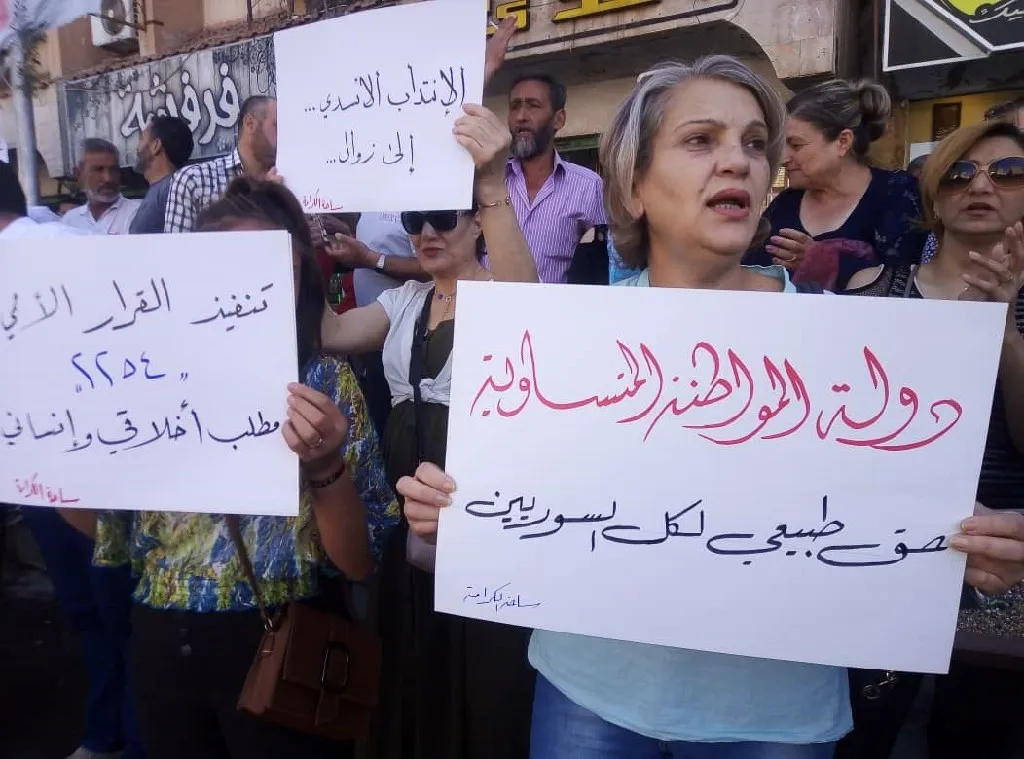 فرفشة
الإنتداب الأسدي...
إلى زوال...
ساحة الكرامة
تنفيذ القرار الأممي
"٢٢٥٤"
مطلب أخلاقي وإنساني
ساحة الكرامة
دولة المواطنة المتساوية
حق طبيعي لكل السوريين
ساحة الكرامة